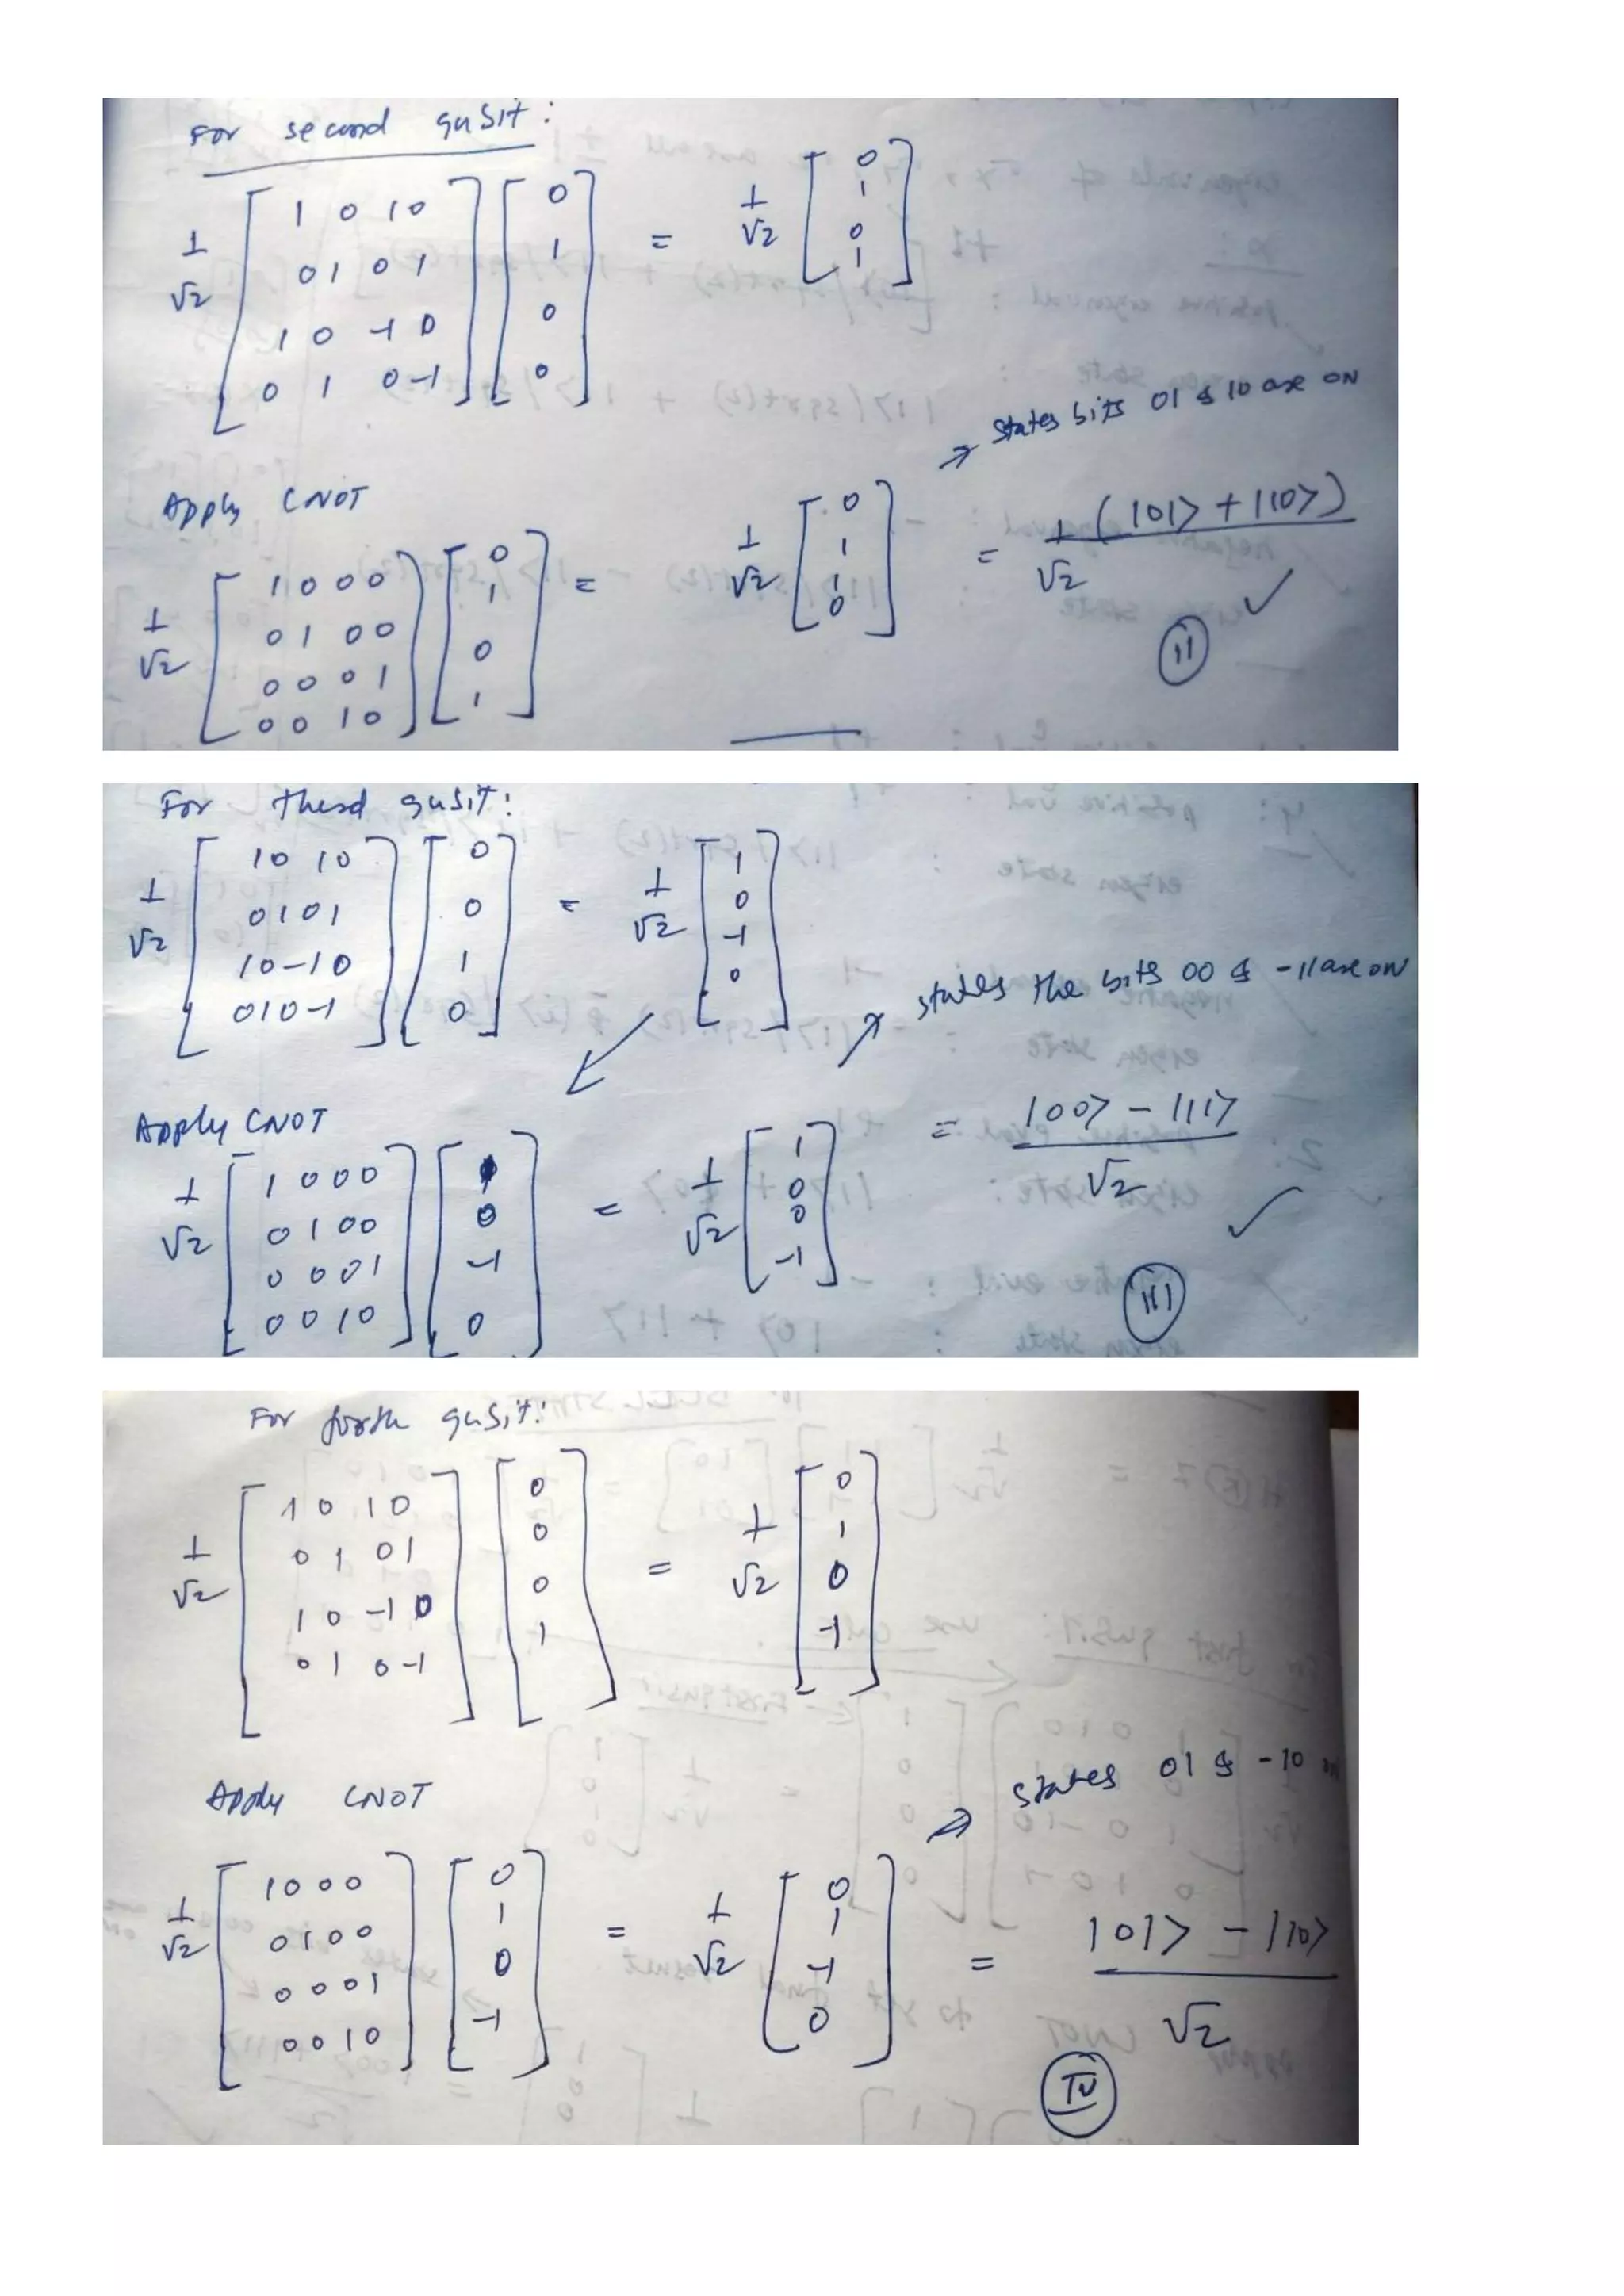 For second qubit:
1/√2 [1 0 1 0; 0 1 0 1; 1 0 -1 0; 0 1 0 -1] [0; 1; 0; 0] = 1/√2 [0; 1; 0; 1]
→ states bits 01 & 10 are ON
Apply CNOT
1/√2 [1 0 0 0; 0 1 0 0; 0 0 0 1; 0 0 1 0] [0; 1; 0; 1] = 1/√2 [0; 1; 1; 0] = 1/√2 (|01> + |10>) ✓
II
For third qubit:
1/√2 [1 0 1 0; 0 1 0 1; 1 0 -1 0; 0 1 0 -1] [0; 0; 1; 0] = 1/√2 [1; 0; -1; 0]
→ states the bits 00 & -11 are ON
Apply CNOT
1/√2 [1 0 0 0; 0 1 0 0; 0 0 0 1; 0 0 1 0] [1; 0; -1; 0] = 1/√2 [1; 0; 0; -1] = |00> - |11> / √2 ✓
III
For forth qubit:
1/√2 [1 0 1 0; 0 1 0 1; 1 0 -1 0; 0 1 0 -1] [0; 0; 0; 1] = 1/√2 [0; 1; 0; -1]
→ states 01 & -10
Apply CNOT
1/√2 [1 0 0 0; 0 1 0 0; 0 0 0 1; 0 0 1 0] [0; 1; 0; -1] = 1/√2 [0; 1; -1; 0] = |01> - |10> / √2
IV